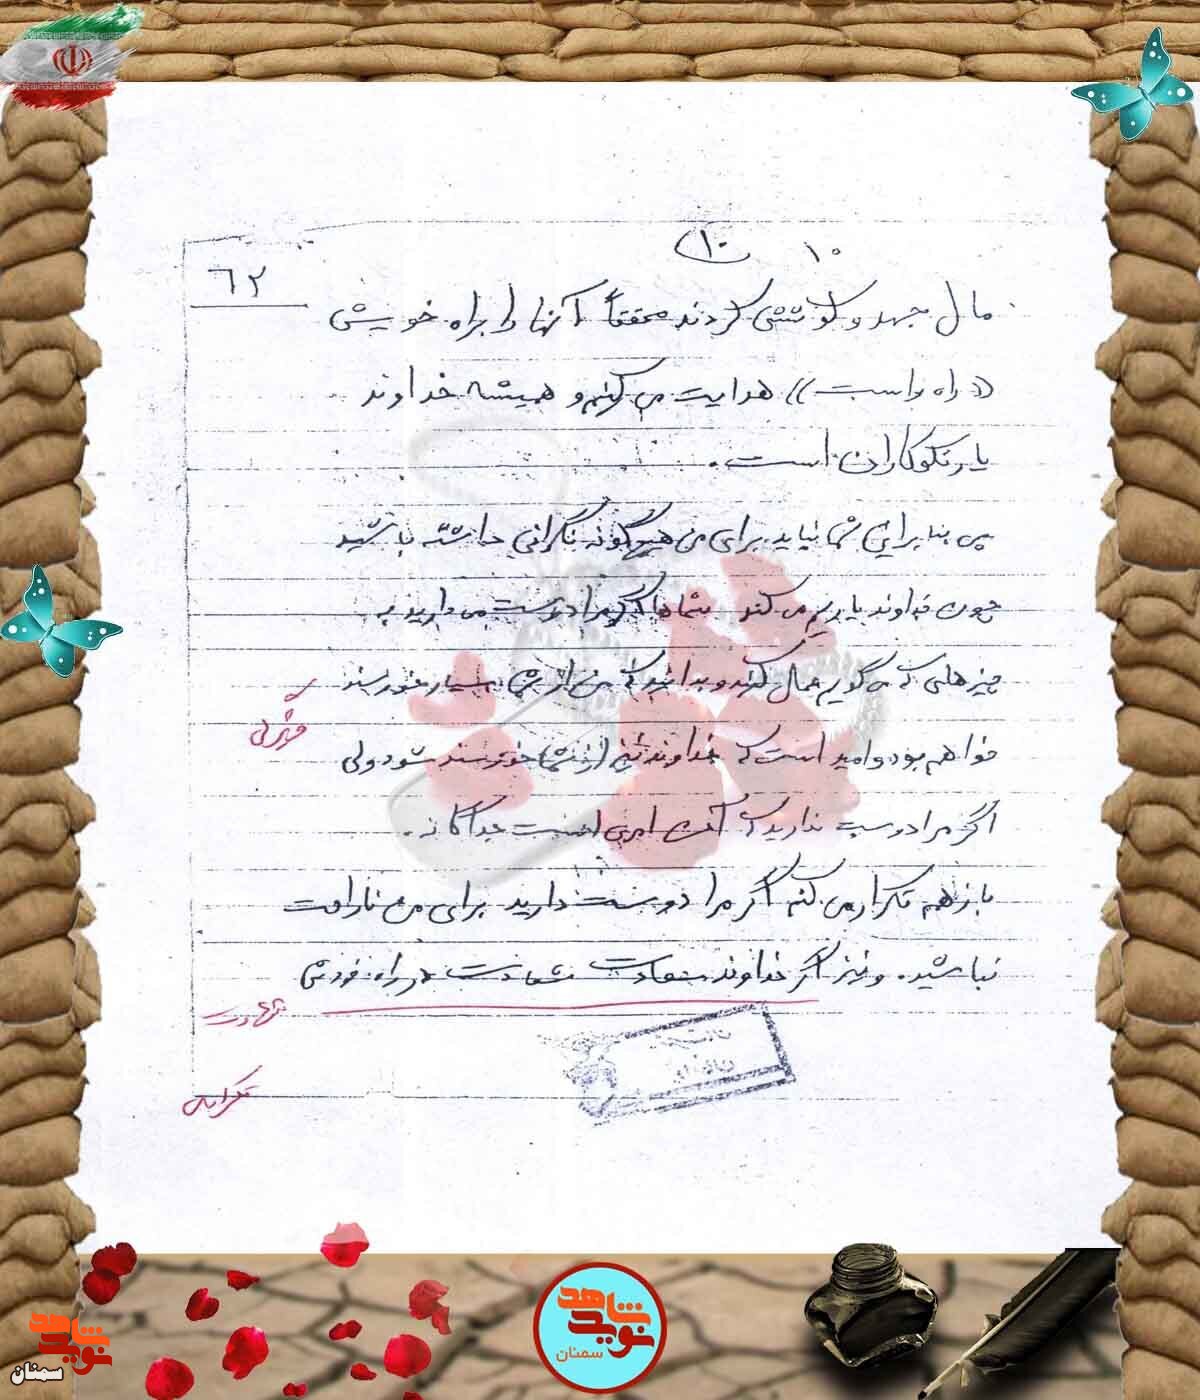 ۱۰ ۱۰
۶۲
مال جهد و کوشش کردند محققاً آنها را براه خویش
((راه راست)) هدایت می کنیم و همیشه خداوند
یار نکوکاران است.
پس بنابراین شما نباید برای من هیچگونه نگرانی داشته باشید
چون خداوند یاریم می کند شماها اگر مرا دوست می دارید به
چیزهایی که می گویم عمل کنید و بدانید که من از شما بسیار خورسند
خواهم بود و امید است که خداوند نیز از شما خورسند شود ولی
اگر مرا دوست ندارید که آن امری است جداگانه.
باز هم تکرار می کنم اگر مرا دوست دارید برای من ناراحت
نباشید. و نیز اگر خداوند سعادت شهادت در راه خودش
شهادت
شاهد
نوید
سمنان
نوید شاهد
سمنان